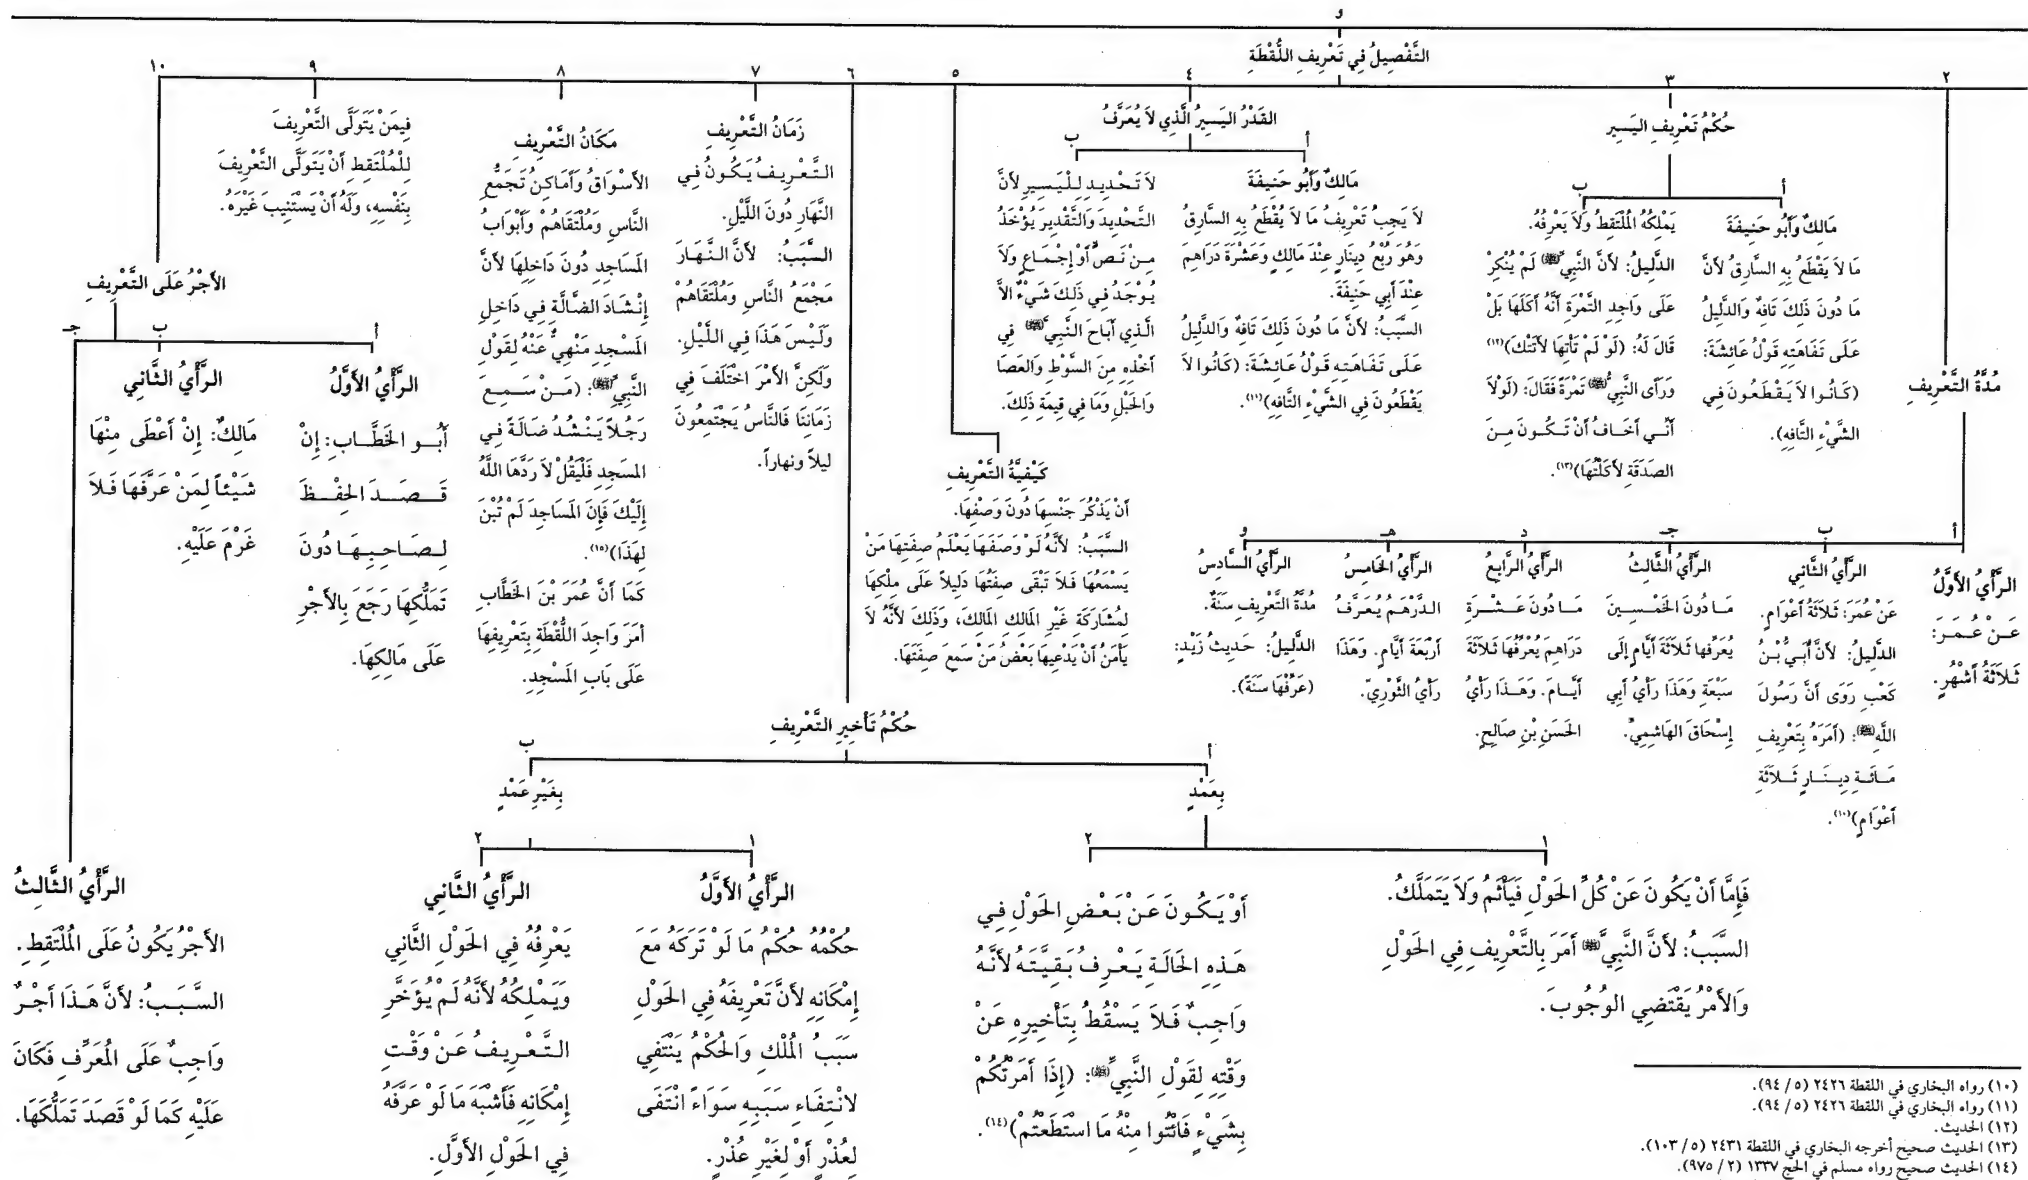 و
التَّفْصِيلُ فِي تَعْرِيفِ اللُّقْطَةِ
٢
٣
٤
٥
٦
٧
٨
٩
١٠
مُدَّةُ التَّعْرِيفِ
أ
الرَّأْيُ الأَوَّلُ
عَـنْ عُـمَـرَ:
ثَـلاَثَةُ أَشْهُرٍ.
ب
الرَّأْيُ الثَّانِي
عَنْ عُمَرَ: ثَلاَثَةُ أَعْوَامٍ.
الدَّلِيلُ: لأَنَّ أُبَيَّ بْـنَ
كَعْبٍ رَوَى أَنَّ رَسُولَ
اللَّهِ ﷺ: (أَمَرَهُ بِتَعْرِيفِ
مَـائَـةِ دِيـنَـارٍ ثَـلاَثَةَ
أَعْوَامٍ)(١٠).
جـ
الرَّأْيُ الثَّالِثُ
مَـا دُونَ الخَمْـسِـينَ
يُعَرِّفُها ثَلاَثَةَ أَيَّامٍ إِلَى
سَبْعَةٍ وَهَذَا رَأْيُ أَبِي
إِسْحَاقَ الهَاشِمِيِّ.
د
الرَّأْيُ الرَّابِعُ
مَـا دُونَ عَـشْـرَةِ
دَرَاهِمَ يُعْرِّفُهَا ثَلاَثَةَ
أَيَّـامَ. وَهَـذَا رَأْيُ
الحَسَنِ بْنِ صَالِحٍ.
هـ
الرَّأْيُ الخَامِسُ
الـدِّرْهَـمُ يُـعَـرَّفُ
أَرْبَعَةَ أَيَّامٍ. وَهَذَا
رَأْيُ الثَّوْرِيِّ.
و
الرَّأْيُ السَّادِسُ
مُدَّةُ التَّعْرِيفِ سَنَةٌ.
الدَّلِيلُ: حَدِيثُ زَيْدٍ:
(عَرِّفْهَا سَنَةً).
حُكْمُ تَعْرِيفِ اليَسِيرِ
أ
مَالِكٌ وَأَبُو حَنِيفَةَ
مَا لاَ يَقْطَعُ بِهِ السَّارِقُ لأَنَّ
مَا دُونَ ذَلِكَ تَافِهٌ وَالدَّلِيلُ
عَلَى تَفَاهَتِهِ قَوْلُ عَائِشَةَ:
(كَـانُـوا لاَ يَـقْـطَـعُـونَ فِي
الشَّيْءِ التَّافِهِ).
ب
يَمْلِكُهُ المُلْتَقِطُ وَلاَ يَعْرِفُهُ.
الدَّلِيلُ: لأَنَّ النَّبِيَّ ﷺ لَمْ يُنْكِرْ
عَلَى وَاجِدِ التَّمْرَةِ أَنَّهُ أَكَلَهَا بَلْ
قَالَ لَهُ: (لَوْ لَمْ تَأْتِهَا لأَتَتْكَ)(١٢)
وَرَأَى النَّبِيُّ ﷺ تَمْرَةً فَقَالَ: (لَوْلاَ
أَنِّـي أَخَـافُ أَنْ تَـكُـونَ مِـنَ
الصَدَقَةِ لأَكَلْتُهَا)(١٣).
القَدْرُ اليَسِيرُ الَّذِي لاَ يُعَرَّفُ
أ
مَالِكٌ وَأَبُو حَنِيفَةَ
لاَ يَجِبُ تَعْرِيفُ مَا لاَ يُقْطَعُ بِهِ السَّارِقُ
وَهُوَ رُبُعُ دِينَارٍ عِنْدَ مَالِكٍ وَعَشْرَةَ دَرَاهِمَ
عِنْدَ أَبِي حَنِيفَةَ.
السَّبَبُ: لأَنَّ مَا دُونَ ذَلِكَ تَافِهٌ وَالدَّلِيلُ
عَـلَـى تَـفَـاهَـتِـهِ قَـوْلُ عَـائِـشَـةَ: (كَـانُـوا لاَ
يَقْطَعُونَ فِي الشَّيْءِ التَّافِهِ)(١١).
ب
لاَ تَـحْـدِيـدِ لِـلْـيَـسِـيـرِ لأَنَّ
التَّـحْدِيدَ وَالتَّقْدِيرَ يُؤْخَذُ
مِـنْ نَـصٍّ أَوْ إِجْـمَـاعٍ وَلاَ
يُـوْجَدُ فِـي ذَلِكَ شَيْءٌ الاَّ
الَّذِي أَبَاحَ النَّبِيُّ ﷺ فِي
أَخْذِهِ مِنَ السَّوْطِ وَالعَصَا
وَالحَبْلِ وَمَا فِي قِيمَةِ ذَلِكَ.
كَيْفِيَّةُ التَّعْرِيفِ
أَنْ يَذْكُرَ جَنْسِهَا دُونَ وَصْفِهَا.
السَّبَبُ: لأَنَّهُ لَوْ وَصَفَهَا يَعْلَمُ صِفَتِهَا مَنْ
يَسْمَعُهَا فَـلاَ تَبْقَى صِفَتُهَا دَلِيلاً عَلَى مِلْكِهَا
لِمُشَارَكَةِ غَيْرِ المَالِكِ المَالِكَ، وَذَلِكَ لأَنَّهُ لاَ
يَأْمَنُ أَنْ يَدَّعِيهَا بَعْضُ مَنْ سَمِعَ صِفَتَهَا.
حُكْمُ تَأْخِيرِ التَّعْرِيفِ
أ
بِعَمْدٍ
١
فَإِمَّا أَنْ يَكُونَ عَنْ كُلِّ الحَوْلِ فَيَأْثَمُ وَلاَ يَتَمَلَّكُ.
السَّبَبُ: لأَنَّ النَّبِيَّ ﷺ أَمَرَ بِالتَّعْرِيفِ فِي الحَوْلِ
وَالأَمْرُ يَقْتَضِي الوُجُوبَ.
٢
أَوْ يَـكُـونَ عَـنْ بَـعْـضِ الحَوْلِ فِـي
هَـذِهِ الحَالَـةِ يَـعْـرِفُ بَـقِيَّتَهُ لأَنَّـهُ
وَاجِبٌ فَـلاَ يَسْقُطُ بِتَأْخِيرِهِ عَنْ
وَقْتِهِ لِقَوْلِ النَّبِيِّ ﷺ: (إِذَا أَمَرْتُكُمْ
بِشَيْءٍ فَائْتُوا مِنْهُ مَا اسْتَطَعْتُمْ)(١٤).
ب
بِغَيْرِ عَمْدٍ
١
الرَّأْيُ الأَوَّلُ
حُكْمُهُ حُكْمُ مَا لَوْ تَرَكَهُ مَعَ
إِمْكَانِهِ لأَنَّ تَعْرِيفَهُ فِي الحَوْلِ
سَبَبُ المُلْكِ وَالحُكْمُ يَنْتَفِي
لانْـتِفَاءِ سَبَبِهِ سَوَاءً انْتَفَى
لِعُذْرٍ أَوْ لِغَيْرِ عُذْرٍ.
٢
الرَّأْيُ الثَّانِي
يَعْرِفُهُ فِي الحَوْلِ الثَّانِي
وَيَمْلِكُهُ لأَنَّهُ لَمْ يُؤَخَّرِ
التَّـعْـرِيـفُ عَـنْ وَقْـتِ
إِمْكَانِهِ فَأَشْبَهَ مَا لَوْ عَرَّفَهُ
فِي الحَوْلِ الأَوَّلِ.
زَمَانُ التَّعْرِيفِ
التَّـعْـرِيـفُ يَـكُـونُ فِي
النَّهَارِ دُونَ اللَّيْلِ.
السَّبَبُ: لأَنَّ الـنَّـهَـارَ
مَجْمَعُ النَّاسِ وَمُلْتَقَاهُمْ
وَلَيْسَ هَذَا فِي اللَّيْلِ.
وَلَكِنَّ الأَمْرَ اخْتَلَفَ فِي
زَمَانِنَا فَالنَّاسُ يَجْتَمِعُونَ
ليلاً ونهاراً.
مَكَانُ التَّعْرِيفِ
الأَسْوَاقُ وَأَمَاكِنُ تَجَمُّعِ
النَّاسِ وَمُلْتَقَاهُمْ وَأَبْوَابُ
المَسَاجِدِ دُونَ دَاخِلِهَا لأَنَّ
إِنْشَادَ الضَّالَّةِ فِي دَاخِلِ
المَسْجِدِ مَنْهِيٌّ عَنْهُ لِقَوْلِ
النَّبِيِّ ﷺ: (مَـنْ سَـمِـعَ
رَجُـلاً يَـنْـشُـدُ ضَـالَـةً فِي
المسَجِدِ فَلْيَقُلْ لاَ رَدَّهَا اللَّهُ
إِلَيْكَ فَإِنَ المَسَاجِدَ لَمْ تُبْنَ
لِهَذَا)(١٥).
كَمَا أَنَّ عُمَرَ بْنَ الخَطَّابِ
أَمَرَ وَاجِدَ اللُّقْطَةِ بِتَعْرِيفِهَا
عَلَى بَابِ المَسْجِدِ.
فِيمَنْ يَتَوَلَّى التَّعْرِيفَ
لِلْمُلْتَقِطِ أَنْ يَتَوَلَّى التَّعْرِيفَ
بِنَفْسِهِ، وَلَهُ أَنْ يَسْتَنِيبَ غَيْرَهُ.
الأَجْرُ عَلَى التَّعْرِيفِ
أ
الرَّأْيُ الأَوَّلُ
أَبُـو الخَطَّـابِ: إِنْ
قَـصَـدَ الحِفْـظَ
لِـصَـاحِـبِـهَـا دُونَ
تَمَلُّكِهَا رَجَعَ بِالأَجْرِ
عَلَى مَالِكِهَا.
ب
الرَّأْيُ الثَّانِي
مَالِكٌ: إِنْ أَعْطَى مِنْهَا
شَيْئاً لِمَنْ عَرَّفَهَا فَـلاَ
غَرْمَ عَلَيْهِ.
جـ
الرَّأْيُ الثَّالِثُ
الأَجْرُ يَكُونُ عَلَى المُلْتَقِطِ.
السَّـبَـبُ: لأَنَّ هَـذَا أَجْـرٌ
وَاجِبٌ عَلَى المُعَرِّفِ فَكَانَ
عَلَيْهِ كَمَا لَوْ قَصَدَ تَمَلُّكَهَا.
(١٠) رواه البخاري في اللقطة ٢٤٢٦ (٥ / ٩٤).
(١١) رواه البخاري في اللقطة ٢٤٢٦ (٥ / ٩٤).
(١٢) الحديث.
(١٣) الحديث صحيح أخرجه البخاري في اللقطة ٢٤٣١ (٥ / ١٠٣).
(١٤) الحديث صحيح رواه مسلم في الحج ١٣٣٧ (٢ / ٩٧٥).